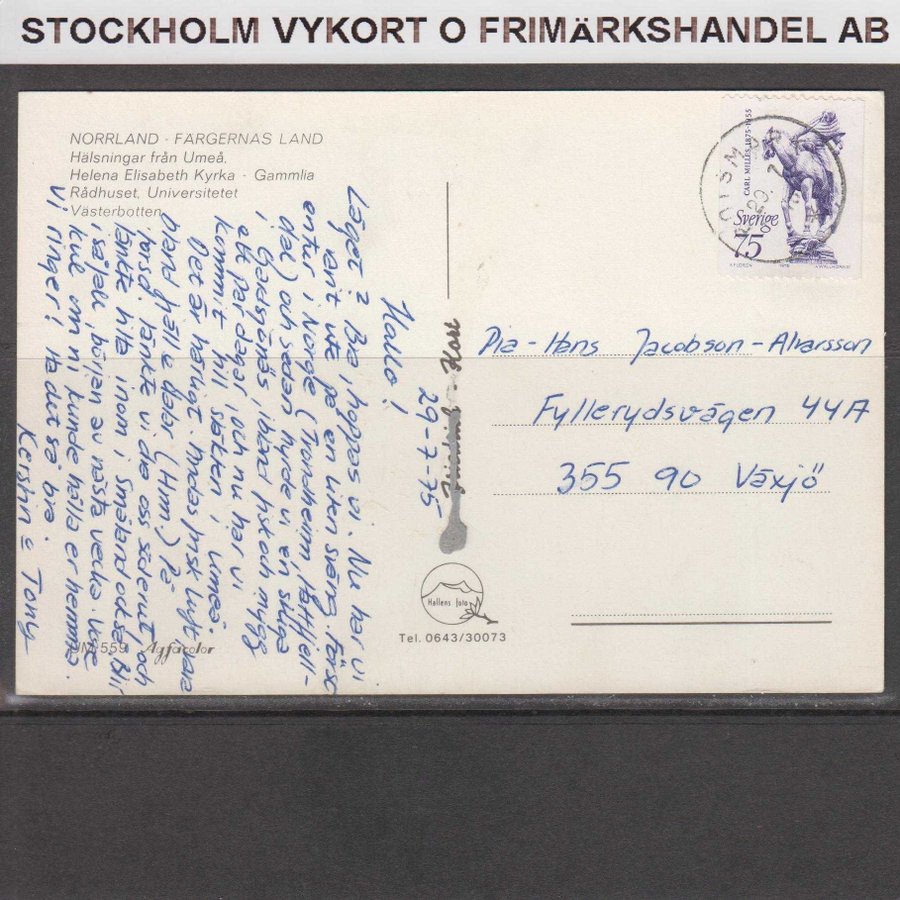 STOCKHOLM VYKORT O FRIMÄRKSHANDEL AB
NORRLAND - FÄRGERNAS LAND
Hälsningar från Umeå,
Helena Elisabeth Kyrka - Gammlia
Rådhuset, Universitetet
Västerbotten
29-7-75
Hallo!
Läget? Bra, hoppas vi. Nu har vi
varit ute på en liten sväng. Först
en tur i Norge (Trondheim,
dal) och sedan hyrde vi en stuga
i bland fisk och mygg
ett par dagar och nu har vi
kommit hit till i Umeå.
Det är härligt, medas frisk luft vara
(Hm.) På
torsd. tänkte vi dra oss söderut och
tänkte hitta inom i Småland också. Blir
i så fall i början av nästa vecka. Vore
kul om ni kunde hålla er hemma.
Vi ringer! Ha det så bra.
Kerstin = Tony
UM 559 Agfacolor
Hallens foto
Tel. 0643/30073
CARL MILLES 1875-1955
Sverige
75
Pia - Hans Jacobson - Alvarsson
Fyllerydsvägen 44A
355 90 Växjö